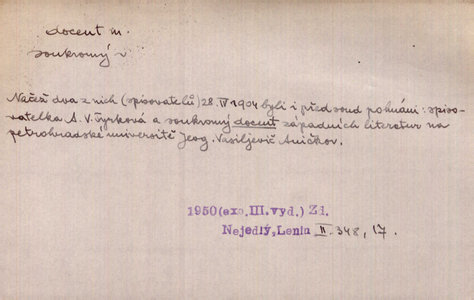 docent m.
soukromý v
Načež dva z nich (spisovatelů) 28. IV 1904 byli i před soud pohnáni: spiso-
vatelka A. V. Tyrková a soukromý docent západních literatur na
petrohradské universitě Jeog. Vasiljevič Aničkov.
1950(exc.III.vyd.) Zd.
Nejedlý,Lenin II. 348, 17.